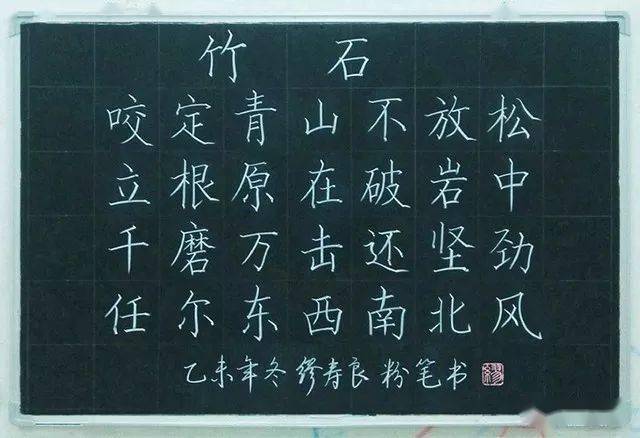 竹石
咬定青山不放松
立根原在破岩中
千磨万击还坚劲
任尔东西南北风
乙未年冬缪寿良粉笔书